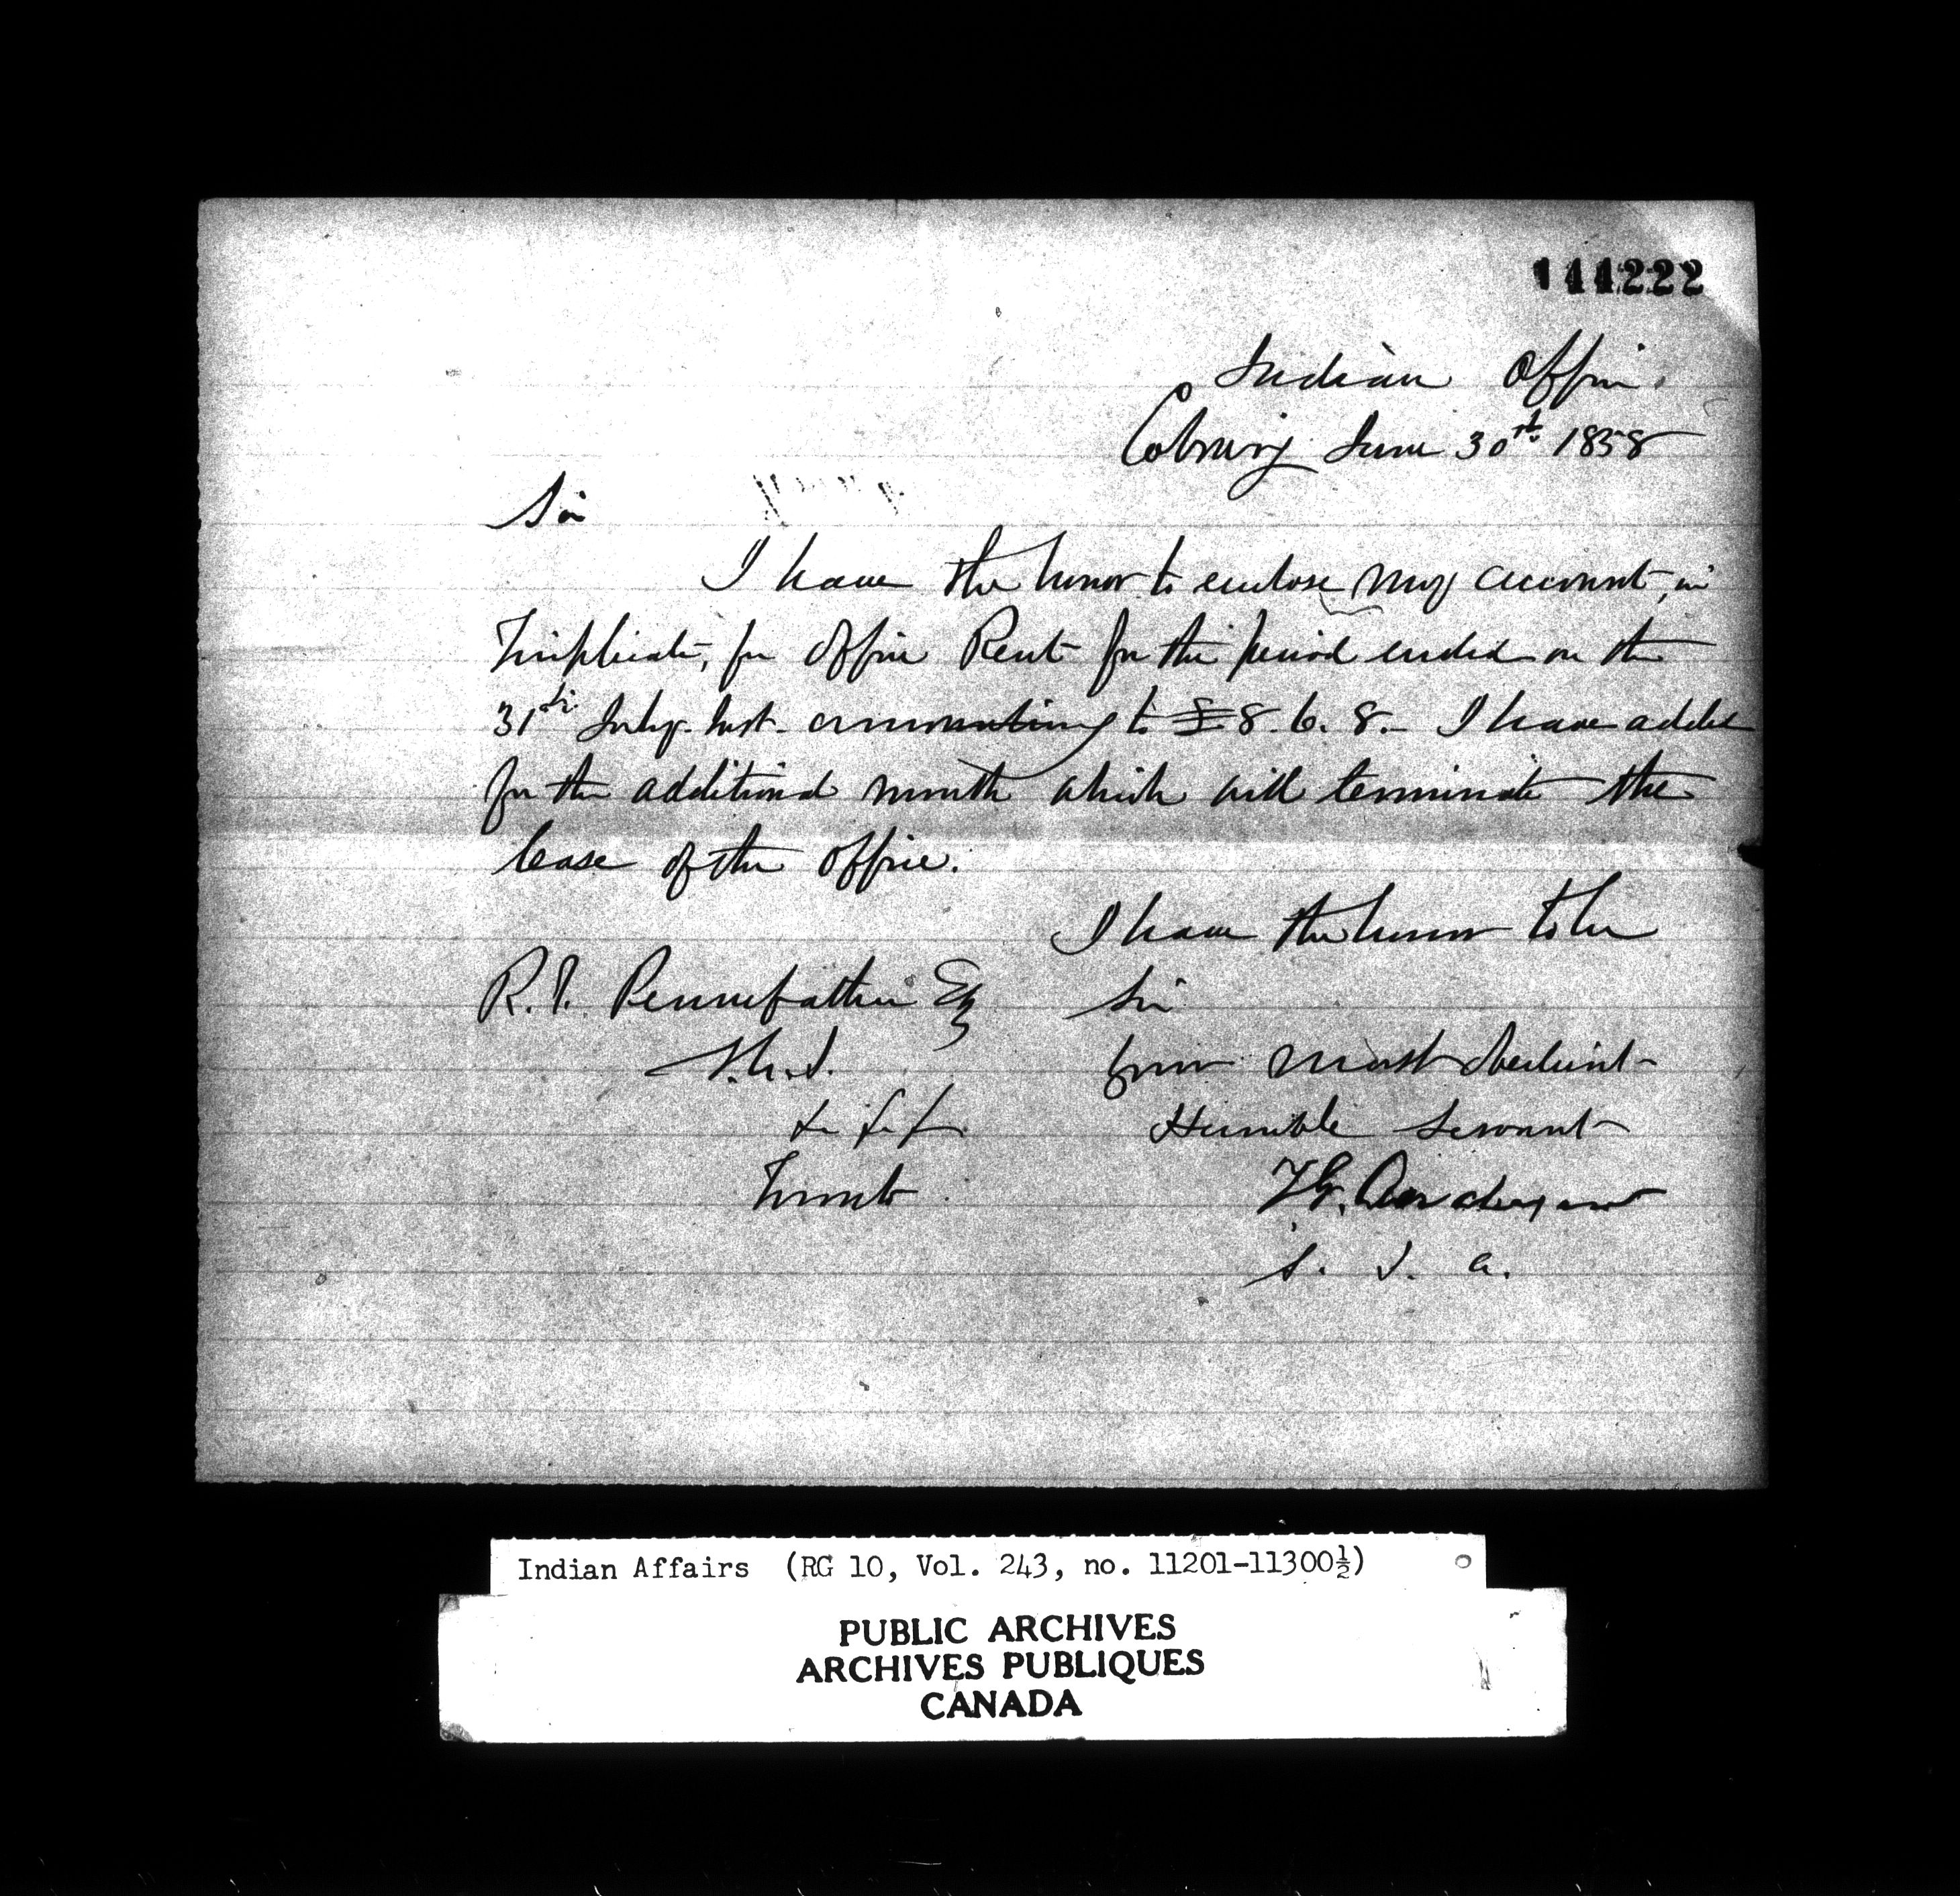 144222
Indian Office
Cobourg June 30th 1858
Sir
I have the honor to enclose my account, in
Triplicate, for Office Rent for the period ended on the
31st July Inst. amounting to £8. 6. 8. I have added
for the additional month which will terminate the
lease of the office.
I have the honor to be
R. T. Pennefather Esq Sir
S. G. I. your most obedient
&c &c &c Humble Servant
Toronto T. G. Anderson
S. I. A.
Indian Affairs (RG 10, Vol. 243, no. 11201-11300½)
PUBLIC ARCHIVES
ARCHIVES PUBLIQUES
CANADA